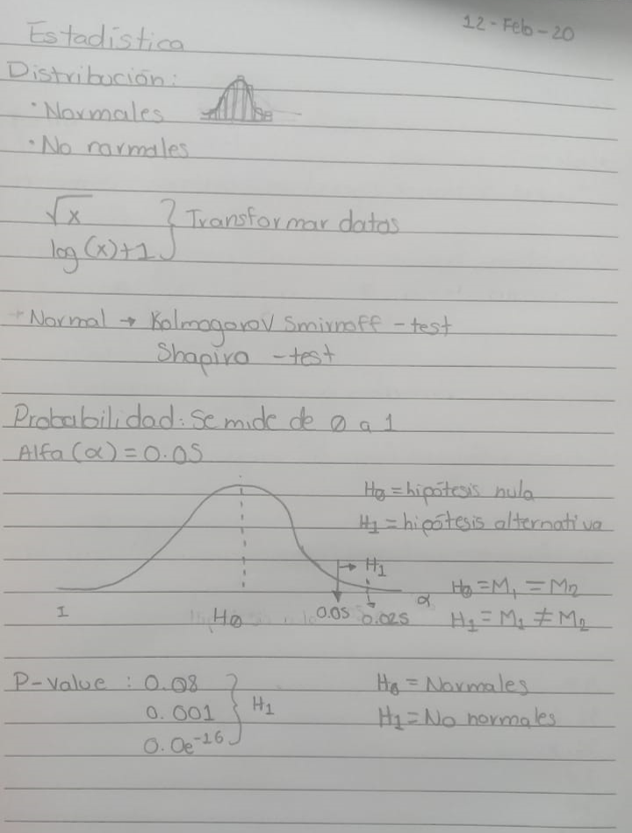 12-Feb-20
Estadística
Distribución:
· Normales
· No normales
√x
log(x)+1 } Transformar datos
Normal → Kolmogorov Smirnoff -test
Shapiro -test
Probabilidad: Se mide de 0 a 1
Alfa (α) = 0.05
H0 = hipótesis nula
H1 = hipótesis alternativa
→ H1
1 H0 0.05 0.025 α
H0 = M1 = M2
H1 = M1 ≠ M2
P-value : 0.08
0.001 } H1
0.0e-16
H0 = Normales
H1 = No normales